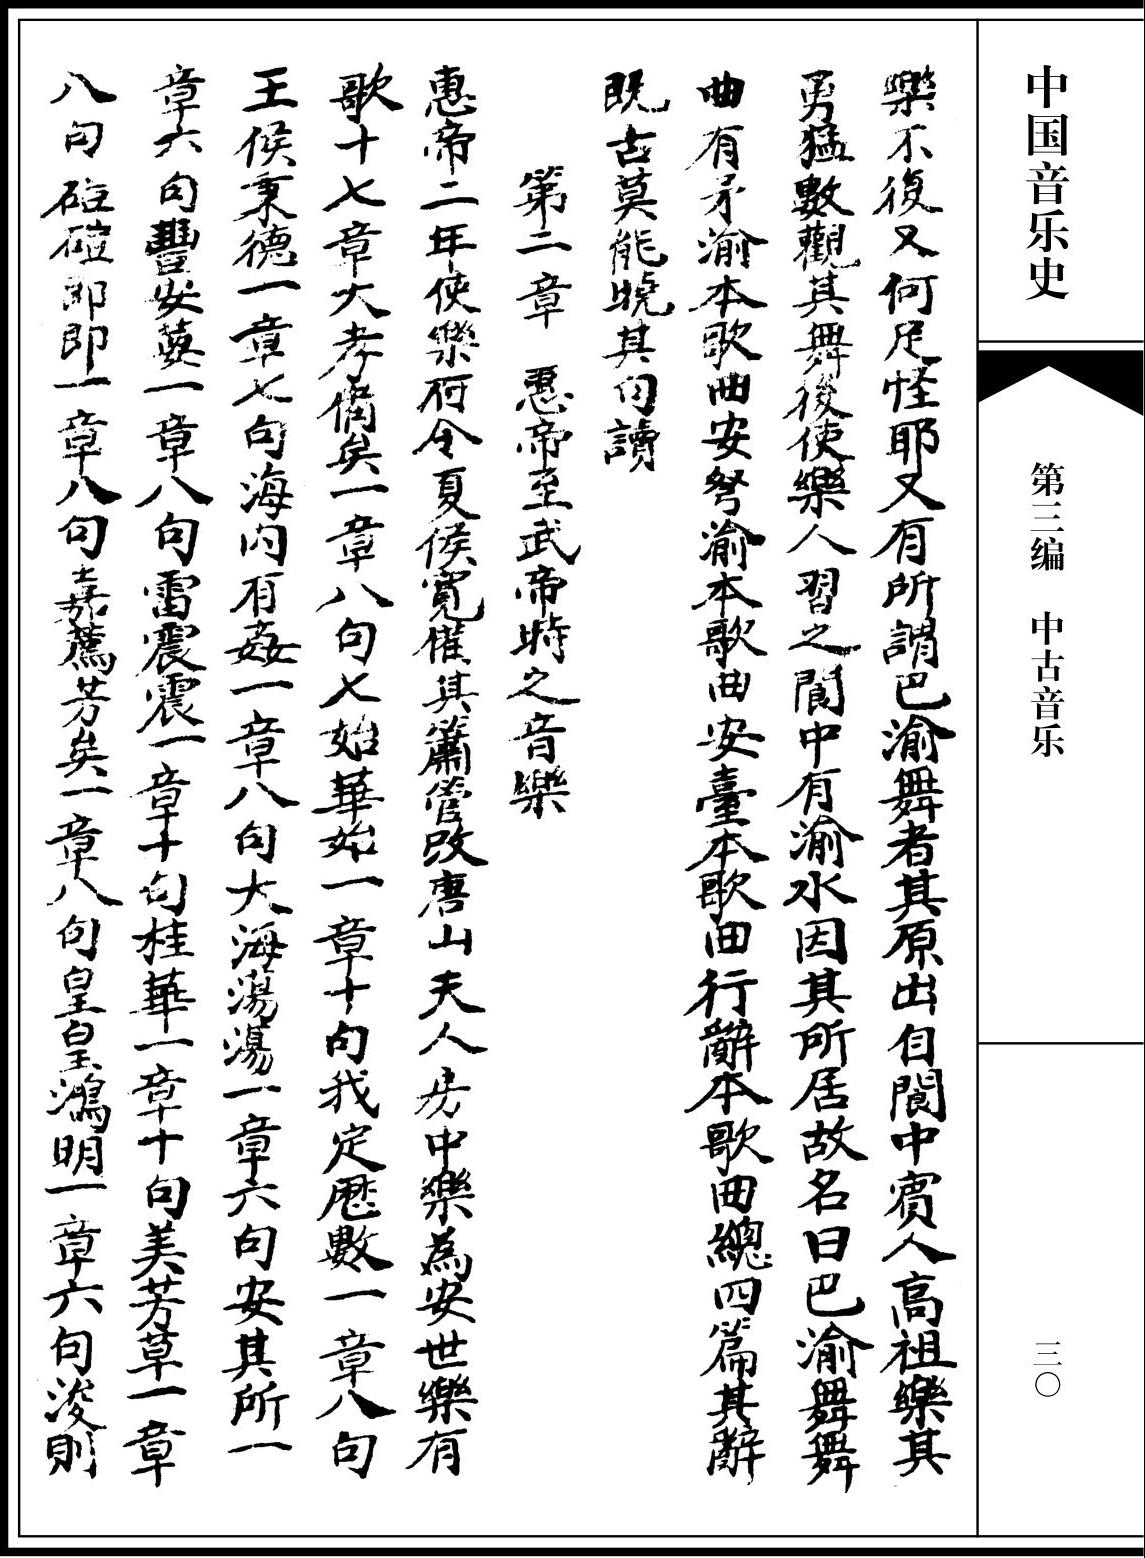 中国音乐史
第三编　中古音乐
三〇
樂不復又何足怪耶又有所謂巴渝舞者其原出自閬中賓人高祖樂其
勇猛數觀其舞後使樂人習之閬中有渝水因其所居故名曰巴渝舞舞
曲有矛渝本歌曲安弩渝本歌曲安臺本歌曲行辭本歌曲總四篇其辭
既古莫能曉其句讀
第二章　惠帝至武帝時之音樂
惠帝二年使樂府令夏侯寬備其簫管改唐山夫人房中樂為安世樂有
歌十七章大孝備矣一章八句七始華始一章十句我定曆數一章八句
王侯秉德一章七句海内有姦一章八句大海蕩蕩一章六句安其所一
章六句豐安葽一章八句雷震震一章十句桂華一章十句美芳草一章
八句磑磑即即一章八句嘉薦芳矣一章八句皇皇鴻明一章六句浚則